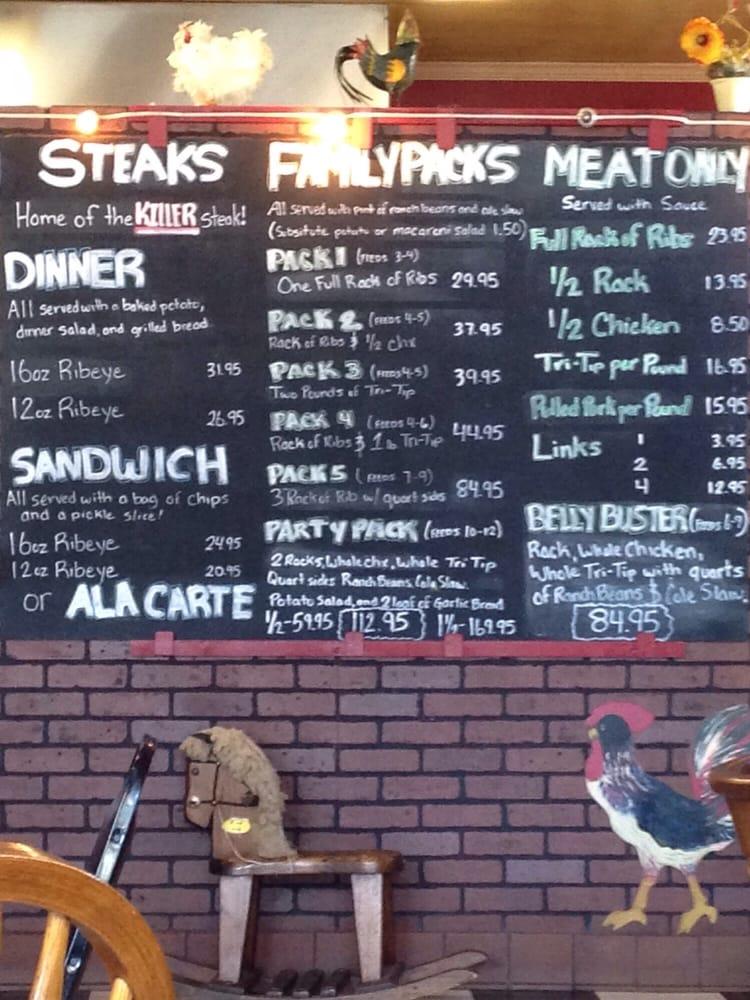 STEAKS
Home of the KILLER Steak!
DINNER
All served with a baked potato,
dinner salad, and grilled bread
16oz Ribeye 31.95
12oz Ribeye 26.95
SANDWICH
All served with a bag of chips
and a pickle slice!
16oz Ribeye 24.95
12oz Ribeye 20.95
or ALA CARTE
FAMILY PACKS
All served with pint of ranch beans and cole slaw
(Subsitute potato or macaroni salad 1.50)
PACK 1 (FEEDS 3-4)
One Full Rack of Ribs 29.95
PACK 2 (FEEDS 4-5)
Rack of Ribs & 1/2 chx 37.95
PACK 3 (FEEDS 4-5)
Two Pounds of Tri-Tip 39.95
PACK 4 (FEEDS 4-6)
Rack of Ribs & 1 lb Tri-Tip 44.95
PACK 5 (FEEDS 7-9)
3 Rack of Rib w/ quart sides 84.95
PARTY PACK (FEEDS 10-12)
2 Racks, Whole chx, Whole Tri Tip
Quart sides Ranch Beans, Cole Slaw,
Potato Salad, and 2 loaf of Garlic Bread
1/2-59.95 112.95 1 1/2-169.95
MEAT ONLY
Served with Sauce
Full Rack of Ribs 23.95
1/2 Rack 13.95
1/2 Chicken 8.50
Tri-Tip per Pound 16.95
Pulled Pork per Pound 15.95
Links 1 3.95
2 6.95
4 12.95
BELLY BUSTER (Feeds 6-9)
Rack, Whole Chicken,
Whole Tri-Tip with quarts
of Ranch Beans & Cole Slaw,
84.95